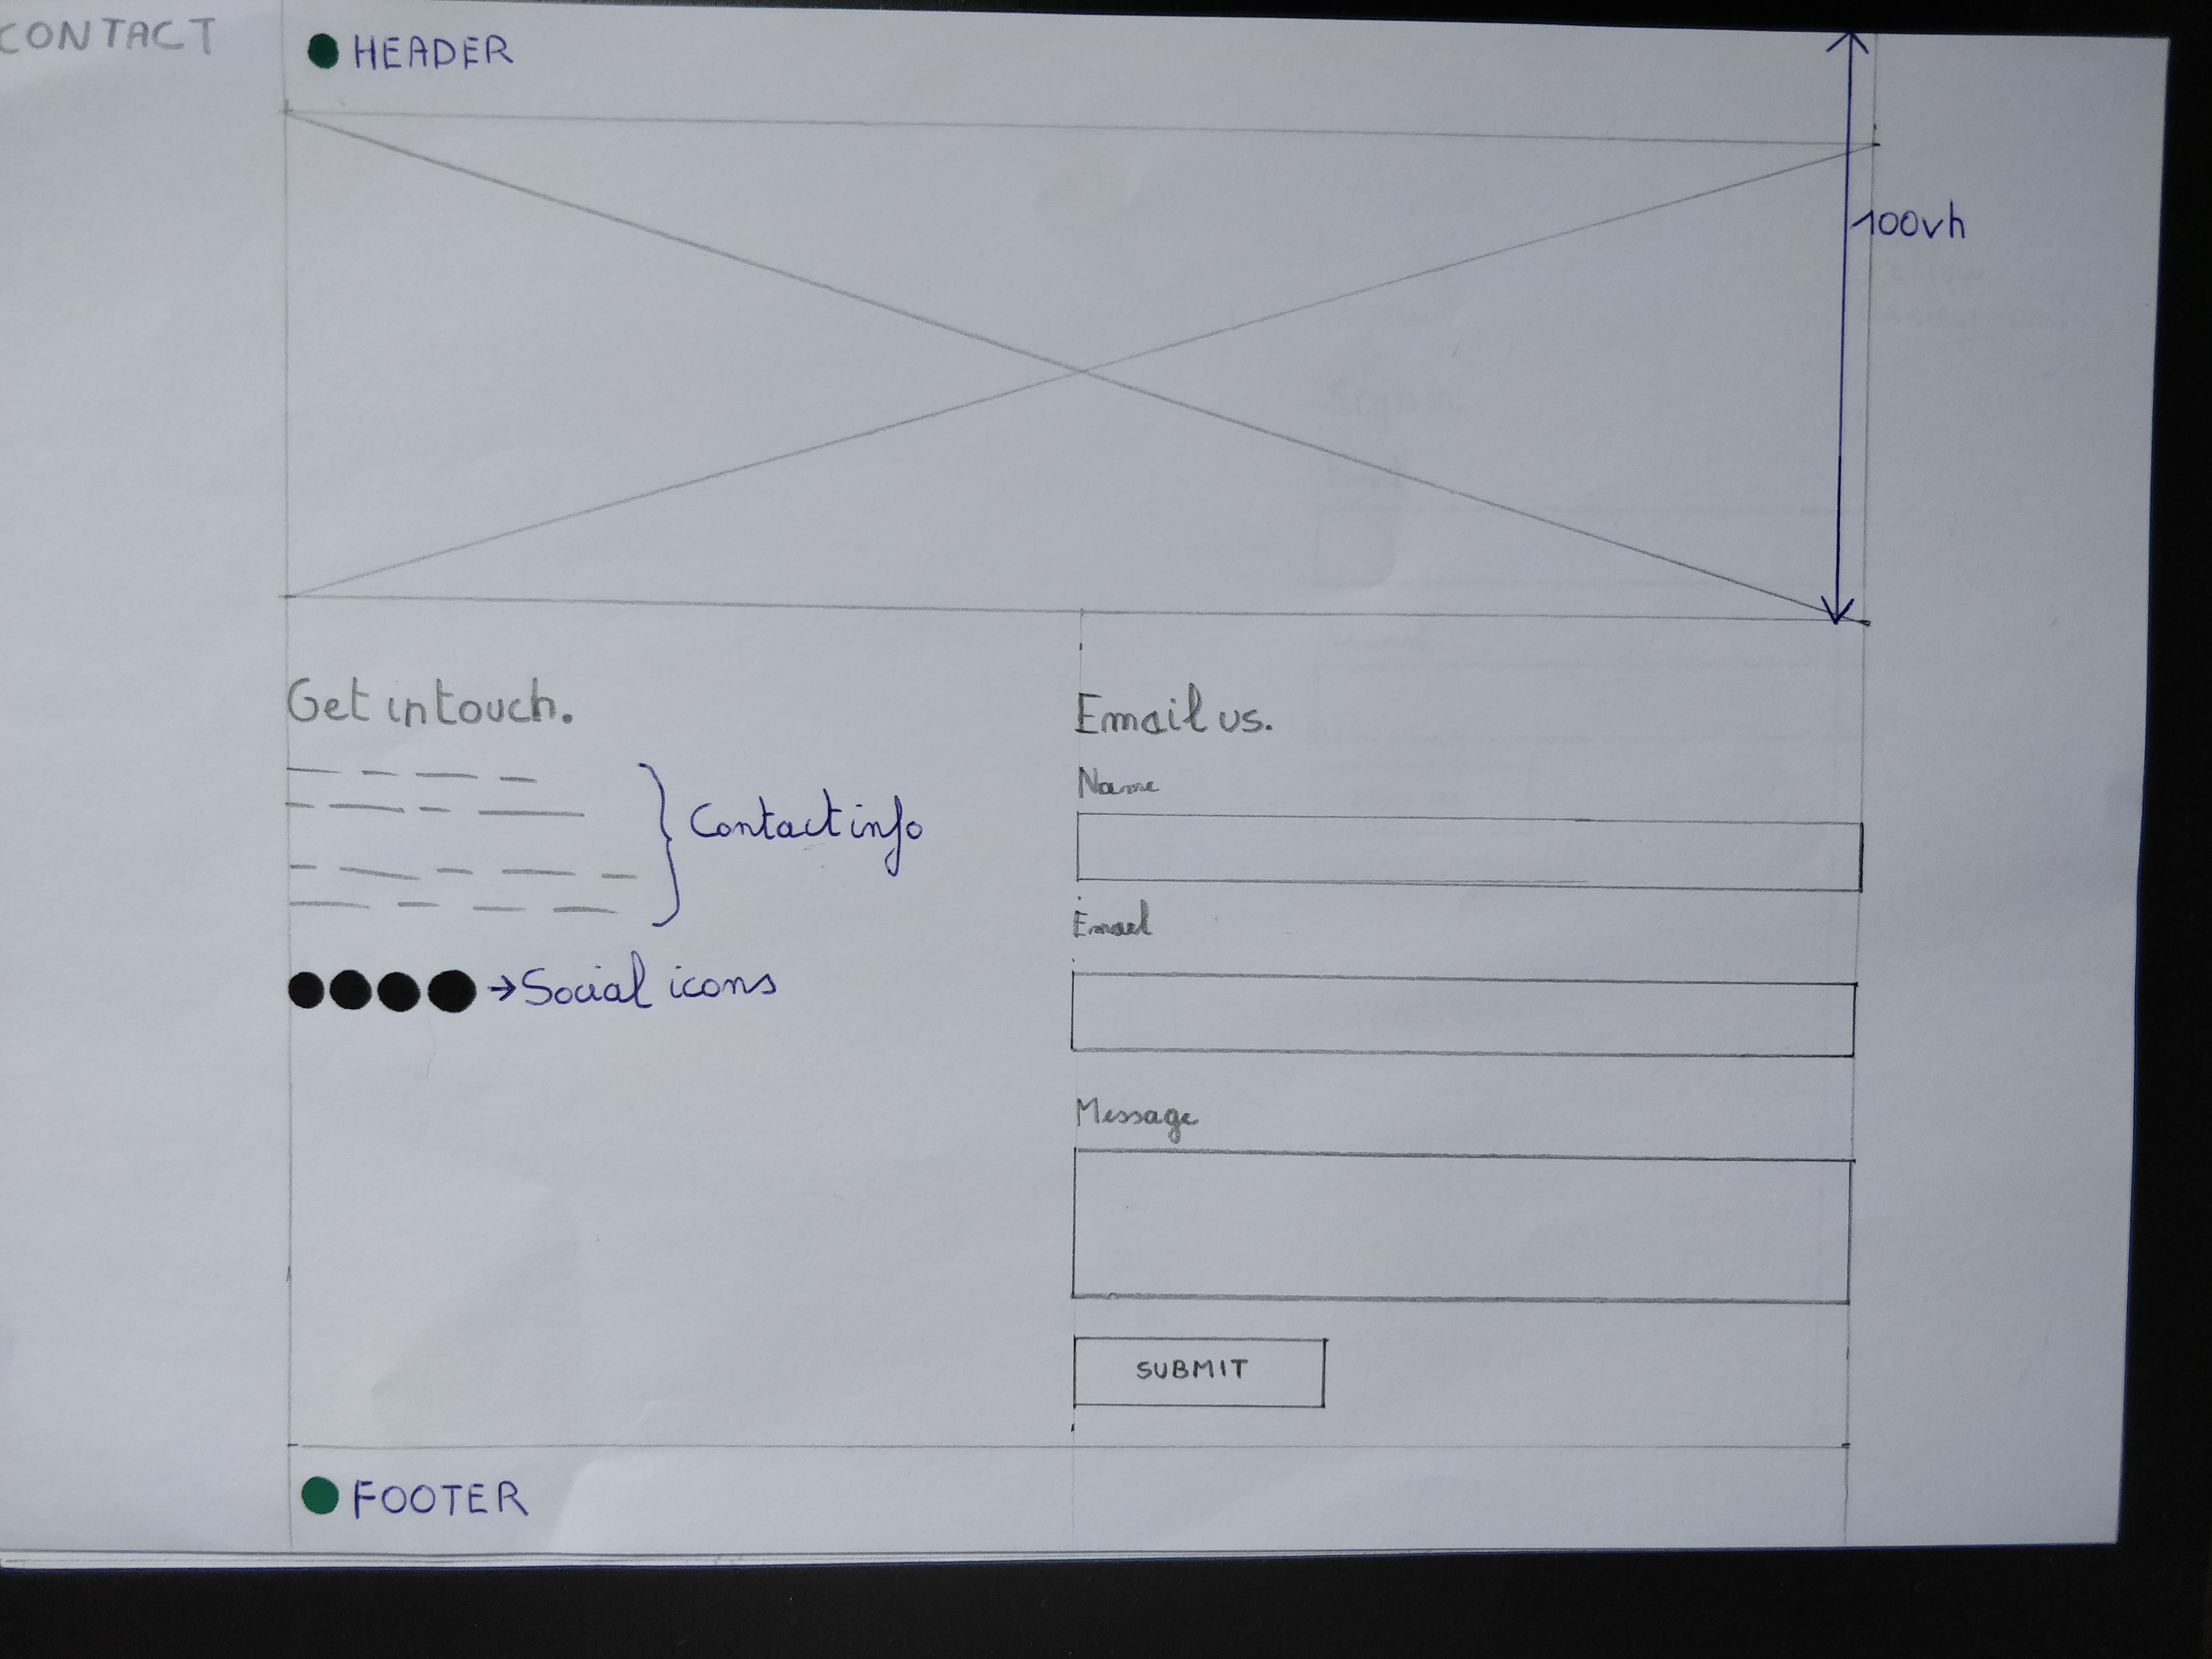 CONTACT
HEADER
100vh
Get in touch.
Contact info
Social icons
Email us.
Name
Email
Message
SUBMIT
FOOTER